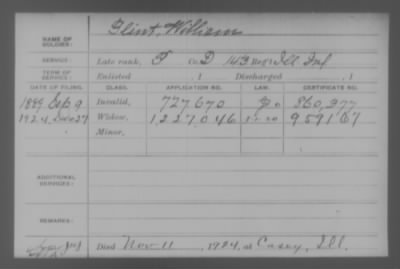 Flint, William
NAME OF SOLDIER:
SERVICE: Late rank, P Co. D 143 Reg't Ill. Inf
TERM OF SERVICE: Enlisted , 1 Discharged , 1
DATE OF FILING. CLASS. APPLICATION NO. LAW. CERTIFICATE NO.
1889 9 Invalid, 727670 860,377
1924, 27 Widow, 1227046 959167
Minor,
ADDITIONAL SERVICES:
REMARKS:
Died Nov 11, 1924, at Casey, Ill.